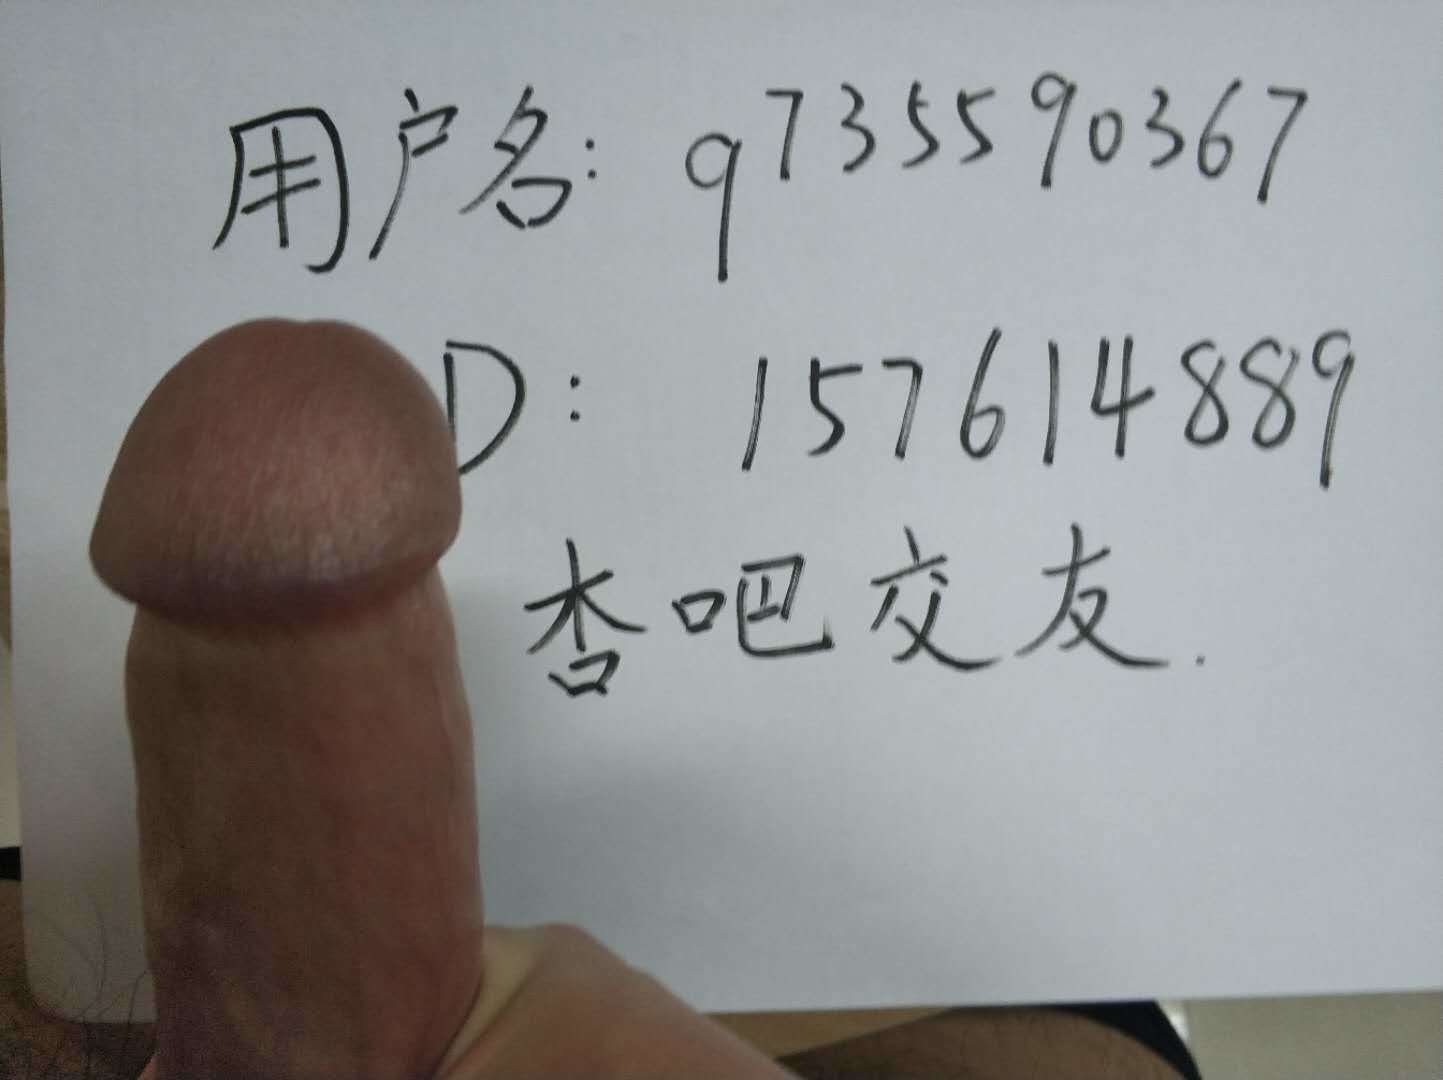 用户名: q735590367
D: 157614889
杏吧交友.